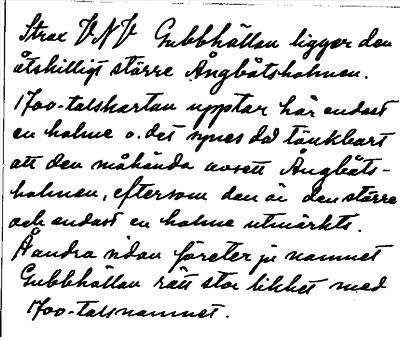 Strax VNV Gubbhällan ligger den
åtskilligt större Ångbåtsholmen.
1700-talskartan upptar här endast
en holme o. det synes då tänkbart
att den måhända avsett Ångbåts-
holmen, eftersom den är den större
och endast en holme utmärkts.
Å andra sidan företer ju namnet
Gubbhällan rätt stor likhet med
1700-talsnamnet.